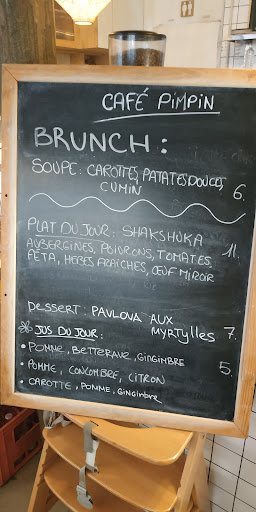 CAFÉ PIMPIN
BRUNCH :
SOUPE : CAROTTES, PATATES DOUCES,
CUMIN 6.
PLAT DU JOUR : SHAKSHUKA
AUBERGINES, POIVRONS, TOMATES, 11.
FÉTA, HERBES FRAÎCHES, ŒUF MIROIR
DESSERT : PAVLOVA AUX
MYRTYLLES 7.
JUS DU JOUR :
• POMME, BETTERAVE, GINGIMBRE 5.
• POMME, CONCOMBRE, CITRON
• CAROTTE, POMME, GINGIMBRE